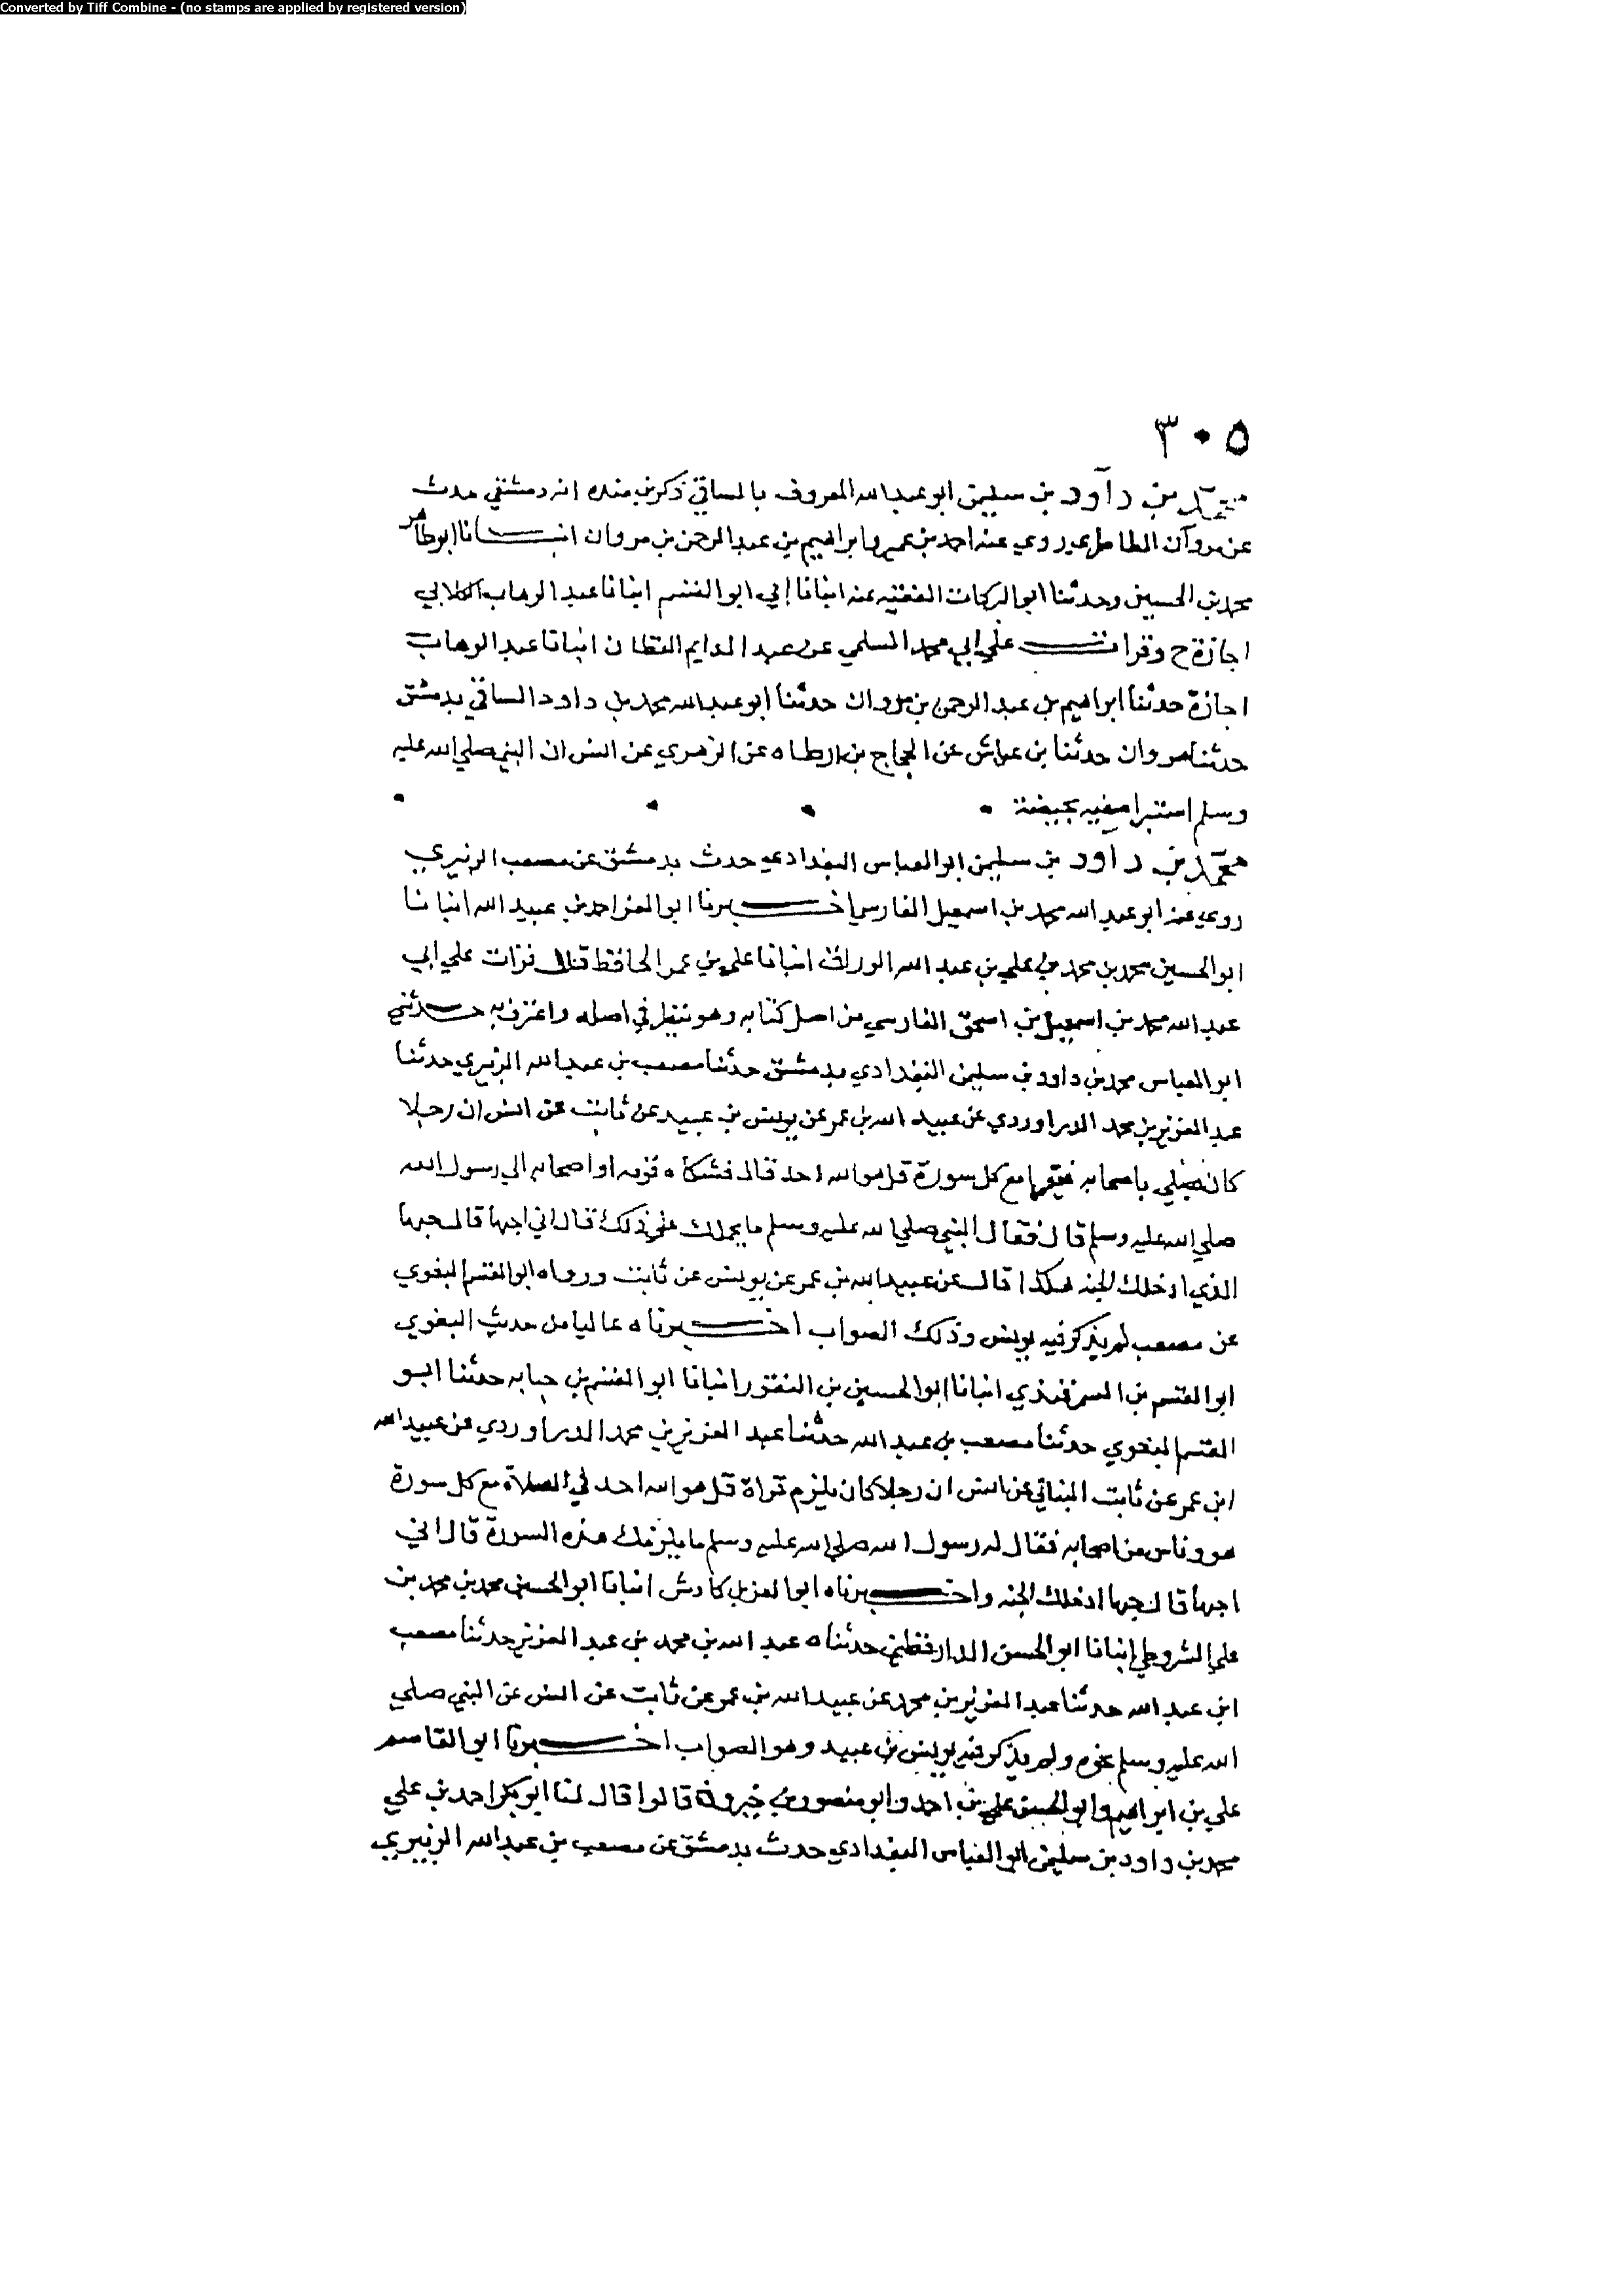 Converted by Tiff Combine - (no stamps are applied by registered version)
٣٠٥
محمد بن داود بن سليمن ابو عبد الله المعروف بالساقي ذكر بن منده انه دمشقي حدث
عن مروان الطاطري روى عنه احمد بن عمير وابراهيم بن عبد الرحمن بن مروان انبـــانا ابو طاهر
محمد بن الحسين وحدثنا ابو البركات الفقيه عنه انبانا ابي ابو القسم انبانا عبد الوهاب الكلابي
اجازة ح وقرات على ابي محمد السلمي عن عبد الدايم القطان انبانا عبد الوهاب
اجازة حدثنا ابراهيم بن عبد الرحمن بن مروان حدثنا ابو عبد الله محمد بن داود الساقي بدمشق
حدثنا مروان حدثنا بن عياش عن الحجاج بن ارطاه عن الزهري عن انس ان النبي صلي الله عليه
وسلم استبرا صفيه بحيضة
محمد بن داود بن سليمن ابو العباس البغدادي حدث بدمشق عن مصعب الزبيري
روى عنه ابو عبد الله محمد بن اسمعيل الفارسي اخـــبرنا ابو العز احمد بن عبيد الله انبانا
ابو الحسين محمد بن محمد بن علي بن عبد الله الوراق انبانا علي بن عمر الحافظ قال قرات علي ابي
عبد الله محمد بن اسمعيل بن اسحق الفارسي من اصل كتابه وهو ينظر في اصله واعترف به حــدثني
ابو العباس محمد بن داود بن سليمن البغدادي بدمشق حدثنا مصعب بن عبد الله الزبيري حدثنا
عبد العزيز بن محمد الدراوردي عن عبيد الله بن عمر عن يونس بن عبيد عن ثابت عن انس ان رجلا
كان يصلي باصحابه فيقرا مع كل سورة قل هو الله احد قال فشكاه قومه او اصحابه الي رسول الله
صلي الله عليه وسلم قال فقال النبي صلي الله عليه وسلم ما يحملك علي ذلك قال اني احبها قال حبها
الذي ادخلك الجنه هكذا قال عن عبيد الله بن عمر عن يونس عن ثابت ورواه ابو القسم البغوي
عن مصعب لم يذكر فيه يونس وذلك الصواب اخـــبرناه عاليا من حديث البغوي
ابو القسم بن السمرقندي انبانا ابو الحسين بن النقور انبانا ابو القسم بن حبابه حدثنا ابو
القسم البغوي حدثنا مصعب بن عبد الله حدثنا عبد العزيز بن محمد الدراوردي عن عبيد الله
ابن عمر عن ثابت البناني عن انس ان رجلا كان يلزم قراة قل هو الله احد في الصلاة مع كل سورة
هو وناس من اصحابه فقال له رسول الله صلي الله عليه وسلم ما يلزمك هذه السورة قال اني
احبها قال حبها ادخلك الجنه واخـــبرناه ابو العز بن كادش انبانا ابو الحسين محمد بن محمد بن
علي الشروطي انبانا ابو الحسن الدارقطني حدثناه عبد الله بن محمد بن عبد العزيز حدثنا مصعب
ابن عبد الله حدثنا عبد العزيز بن محمد عن عبيد الله بن عمر عن ثابت عن انس عن النبي صلي
الله عليه وسلم نحوه ولم يذكر فيه يونس بن عبيد وهو الصواب اخـــبرنا ابو القاسم
علي بن ابراهيم وابو الحسن علي بن احمد وابو منصور بن خيرون قالوا قال لنا ابو بكر احمد بن علي
محمد بن داود بن سليمن ابو العباس البغدادي حدث بدمشق عن مصعب بن عبد الله الزبيري